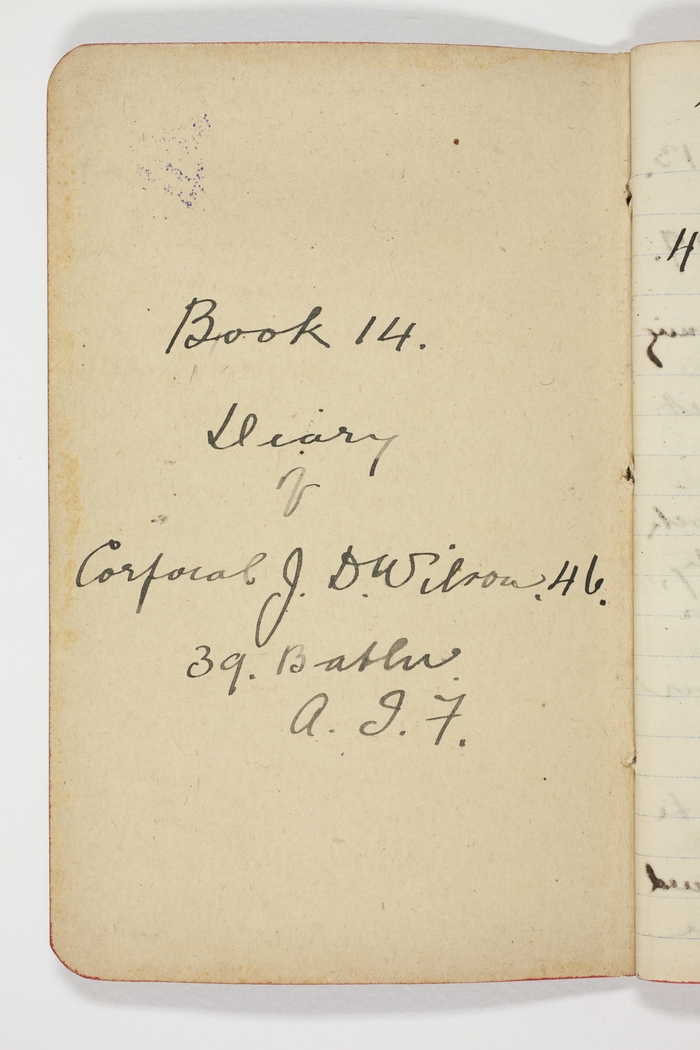 Book 14.
Diary
of
Corporal J. D. Wilson. 46.
39. Battn.
A. I. F.